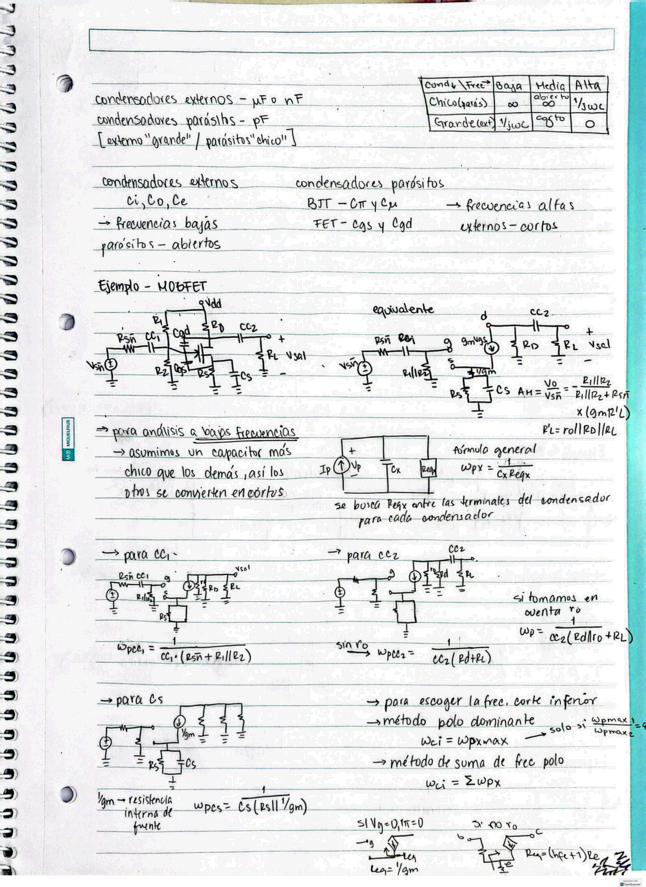 condensadores externos - μF o nF
condensadores parásitos - pF
[externo "grande" / parásitos "chico"]
Cond↓ \ Frec→ Baja Media Alta
Chico (parás) ∞ abierto ∞ 1/jωc
Grande (ext) 1/jωc corto 0
condensadores externos
Ci, Co, Ce
→ frecuencias bajas
parásitos - abiertos
condensadores parásitos
BJT - Cπ y Cμ
FET - Cgs y Cgd
→ frecuencias altas
externos - cortos
Ejemplo - MOSFET
Vdd
R1 RD CC2 +
Rsñ CC1 Cgd
Vsñ R2 Cgs Rs Cs RL Vsal
-
equivalente
Rsñ g
Vsñ R1||R2
d CC2 +
gmVgs RD RL Vsal
s -
Rs Cs
AM = Vo/Vsñ = - R1||R2 / R1||R2 + Rsñ
x (gmR'L)
R'L = ro||RD||RL
⇒ para análisis a bajas frecuencias
→ asumimos un capacitor más
chico que los demás, así los
otros se convierten en cortos
Ip + Vp - Cx Reqx
fórmula general
ωpx = 1 / Cx Reqx
se busca Reqx entre las terminales del condensador
para cada condensador
→ para CC1 -
Rsñ CC1 g Vsal
R1||R2 s RD RL
Rs
ωpcc1 = 1 / CC1·(Rsñ + R1||R2)
→ para CC2
CC2
g d ro Rd RL
sin ro → ωpcc2 = 1 / CC2(Rd+RL)
si tomamos en
cuenta ro
ωp = 1 / CC2(Rd||ro+RL)
→ para Cs
1/gm
Rs Cs
1/gm → resistencia
interna de
fuente
ωpcs = 1 / Cs(Rs||1/gm)
→ para escoger la frec. corte inferior
→ método polo dominante
ωci = ωpxmax → solo si ωpmax1 / ωpmax2 =
→ método de suma de frec polo
ωci = Σωpx
si Vg=0, iπ=0
g
Req
Req = 1/gm
si no ro
b c
e
Req = (hfe+1)Re